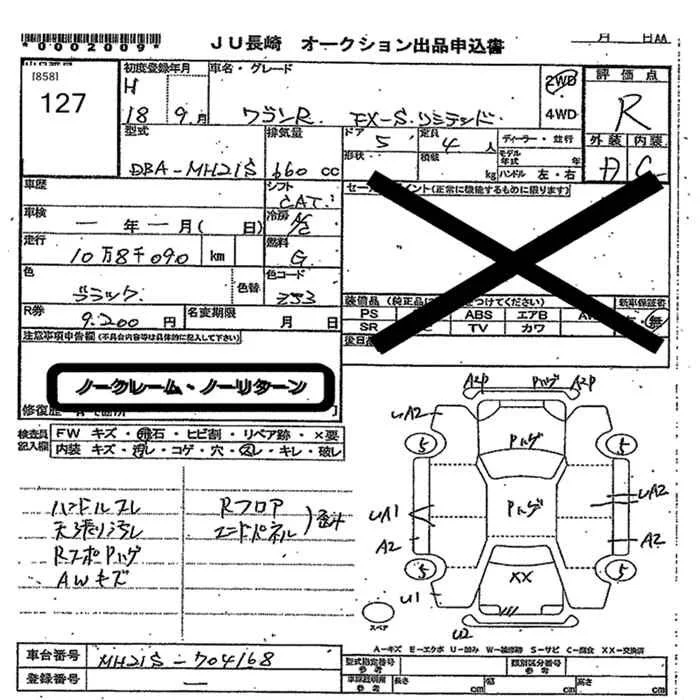 *0002009*
JU長崎 オークション出品申込書
月 日AA
[858]
127
初度登録年月
H
18 9.月
車名・グレード
ワゴンR. FX-S.リミテッド.
2WD
4WD
評価点
R
外装 内装
A C
型式
DBA-MH21S
排気量
660 cc
ドア
5
定員
4人
形状
積載
kg
ディーラー・並行
モデル年式 年
ハンドル 左・右
車歴
シフト
CAT.
車検
一 年 一 月( 日)
冷房
A/C
走行
10万8千090 km
燃料
G
色
ブラック.
色替
色コード
ZJ3
R券
9.200 円
名変期限
月 日
セールスポイント(正常に機能するものに限ります)
新車保証書
・無
PS
ABS エアB
SR
TV カワ
注意事項申告欄(不具合内容等は具体的に記入して下さい)
ノークレーム・ノーリターン
検査員記入欄
FW キズ・飛石・ヒビ割・リペア跡・×要
内装 キズ・汚レ・コゲ・穴・スレ・キレ・破レ
ハンドルスレ
天張り汚レ
RスポPハゲ
AWキズ
Rフロア
エンドパネル
)歪み
A2P Pハゲ A2P
UA2
Pハゲ
5 5
UA1
Pハゲ
UA2
A2
A2
5 5
XX
U1
U2
スペア
A-キズ E-エクボ U-凹み W-補修跡 S-サビ C-腐食 XX-交換済
車台番号
MH21S-704168
登録番号
一
型式指定番号
参考
類別区分番号
参考
車検証明所
参考
長さ
cm
幅
cm
高さ
cm